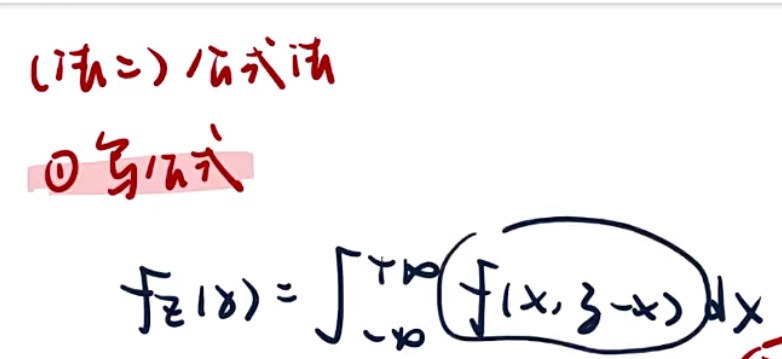 (法二) 公式法
① 写公式
f_Z(z) = ∫_{-∞}^{+∞} f(x, z-x) dx